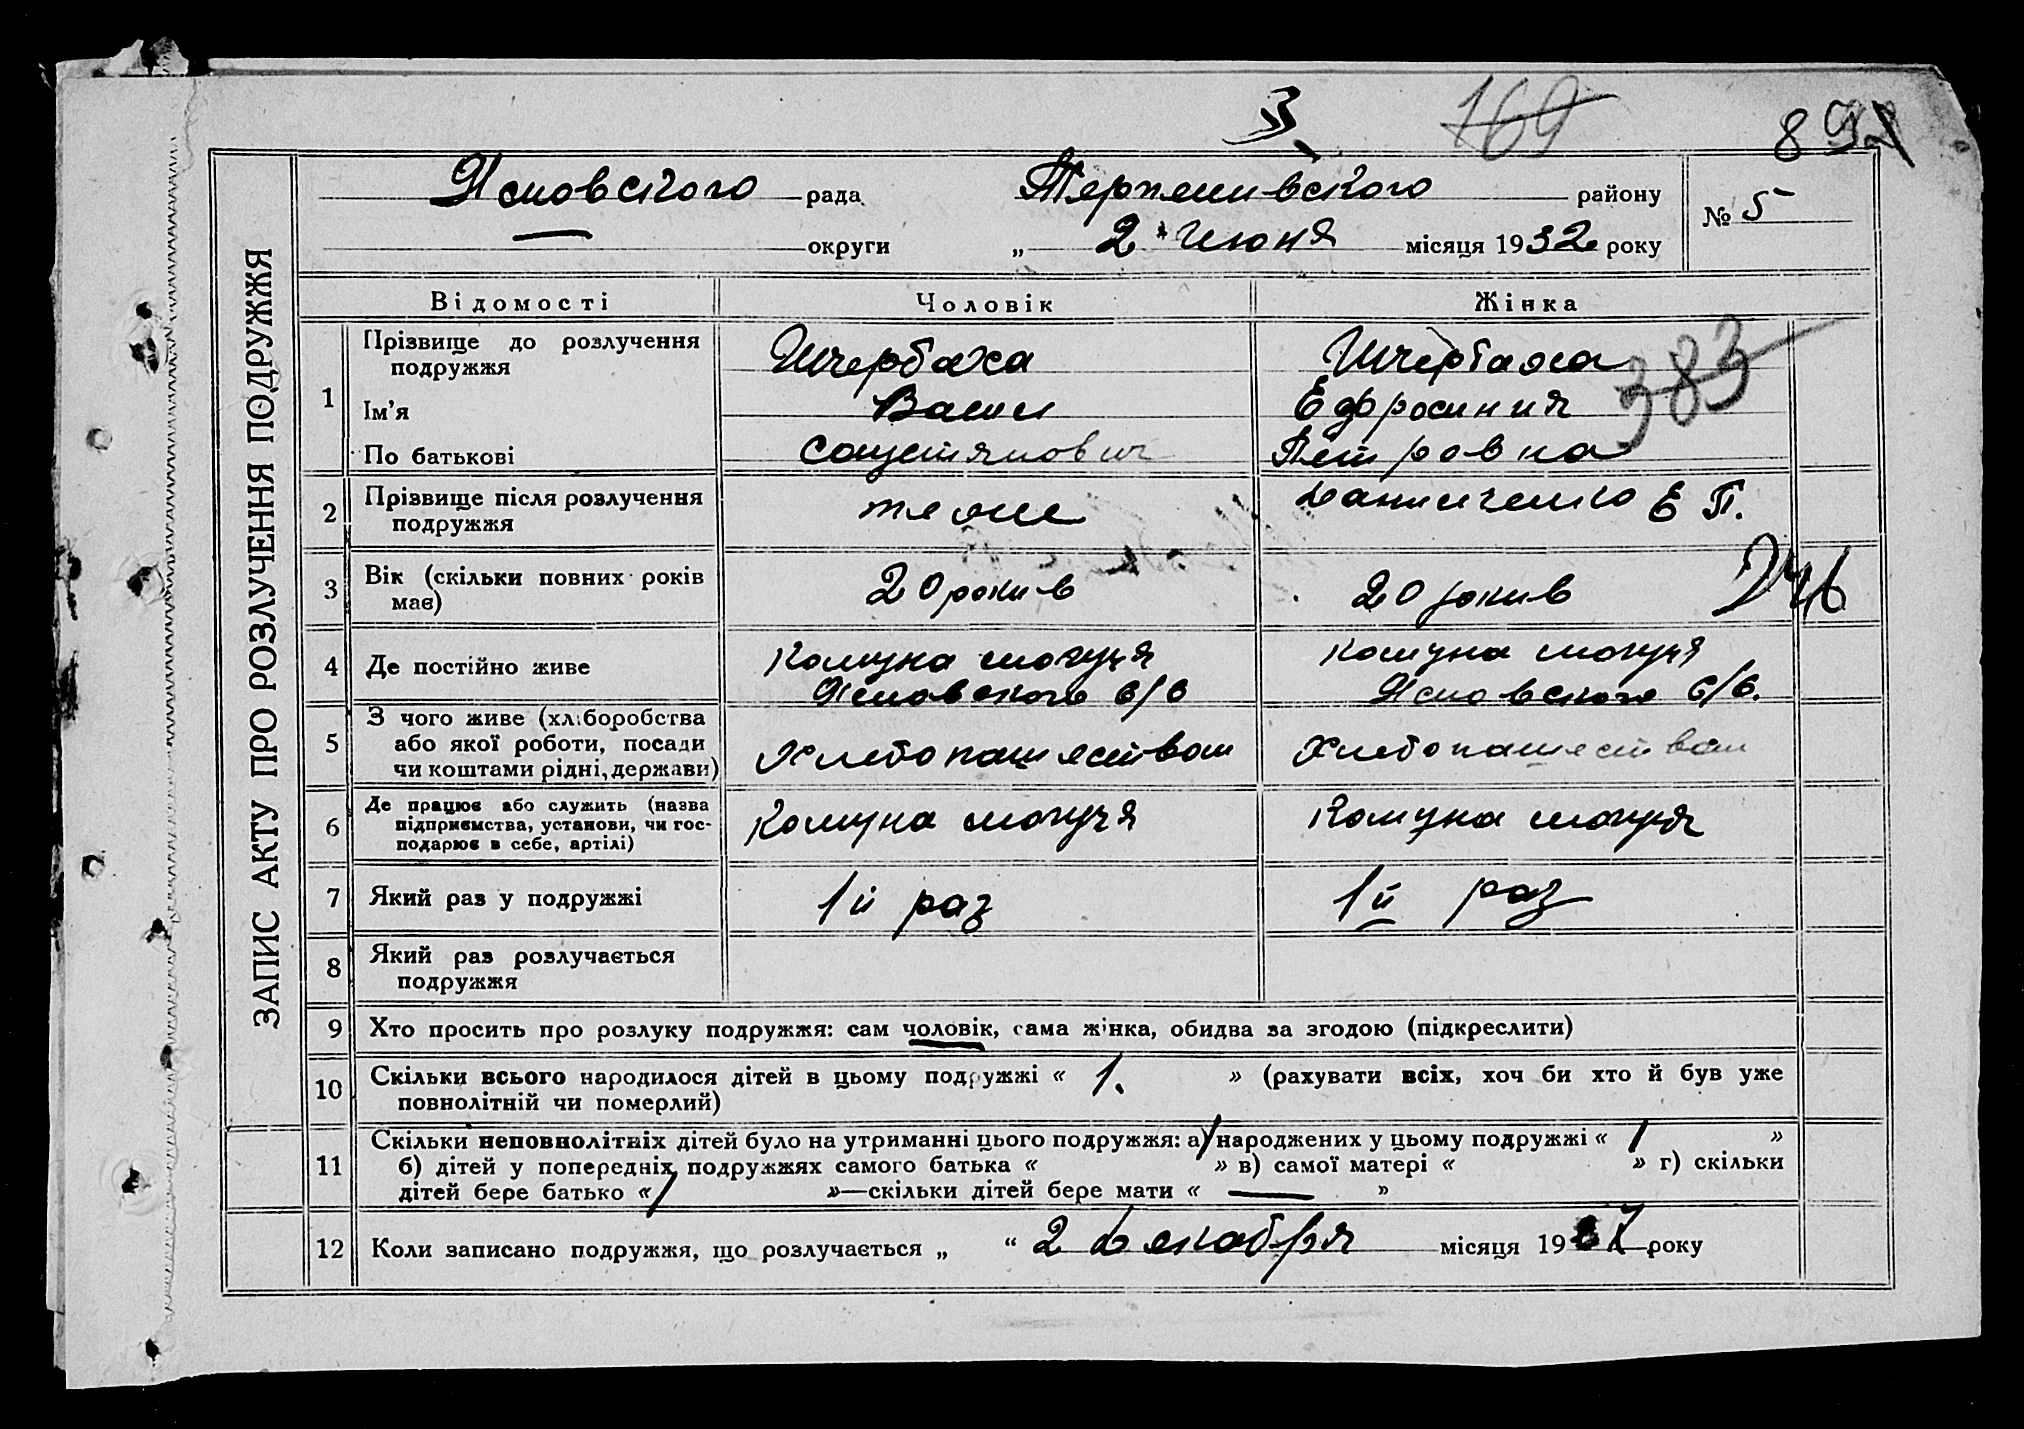 3
169
892
Ясновского рада Терпенивского району
№ 5
округи „ 2 " Июня місяця 1932 року
ЗАПИС АКТУ ПРО РОЗЛУЧЕННЯ ПОДРУЖЖЯ
Відомості Чоловік Жінка
1 Прізвище до розлучення подружжя Шчербаха Шчербаха
383
Ім'я Васил Ефросиния
По батькові Петровна
2 Прізвище після розлучення подружжя тяоже Даниличенко Е П.
3 Вік (скільки повних років має) 20 рокив 20 рокив
246
4 Де постійно живе Комуна могучя Комуна могучя
Ясновского с/с Ясновского с/с.
5 З чого живе (хліборобства
або якої роботи, посади
чи коштами рідні, держави) Хлебопашеством Хлебопашеством
6 Де працює або служить (назва
підприємства, установи, чи гос-
подарює в себе, артілі) Комуна могучя Комуна могучя
7 Який раз у подружжі 1й раз 1й раз
8 Який раз розлучається
подружжя
9 Хто просить про розлуку подружжя: сам чоловік, сама жінка, обидва за згодою (підкреслити)
10 Скільки всього народилося дітей в цьому подружжі « 1. » (рахувати всіх, хоч би хто й був уже
повнолітній чи померлий)
11 Скільки неповнолітніх дітей було на утриманні цього подружжя: а) народжених у цьому подружжі « 1 »
б) дітей у попередніх подружжях самого батька « » в) самої матері « » г) скільки
дітей бере батько « 1 »—скільки дітей бере мати « — »
12 Коли записано подружжя, що розлучається „ “ 2 Декабря місяця 19 року